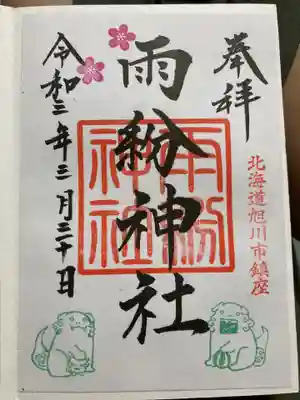 奉拝
北海道旭川市鎮座
雨紛神社
雨紛神社
令和三年三月二十日